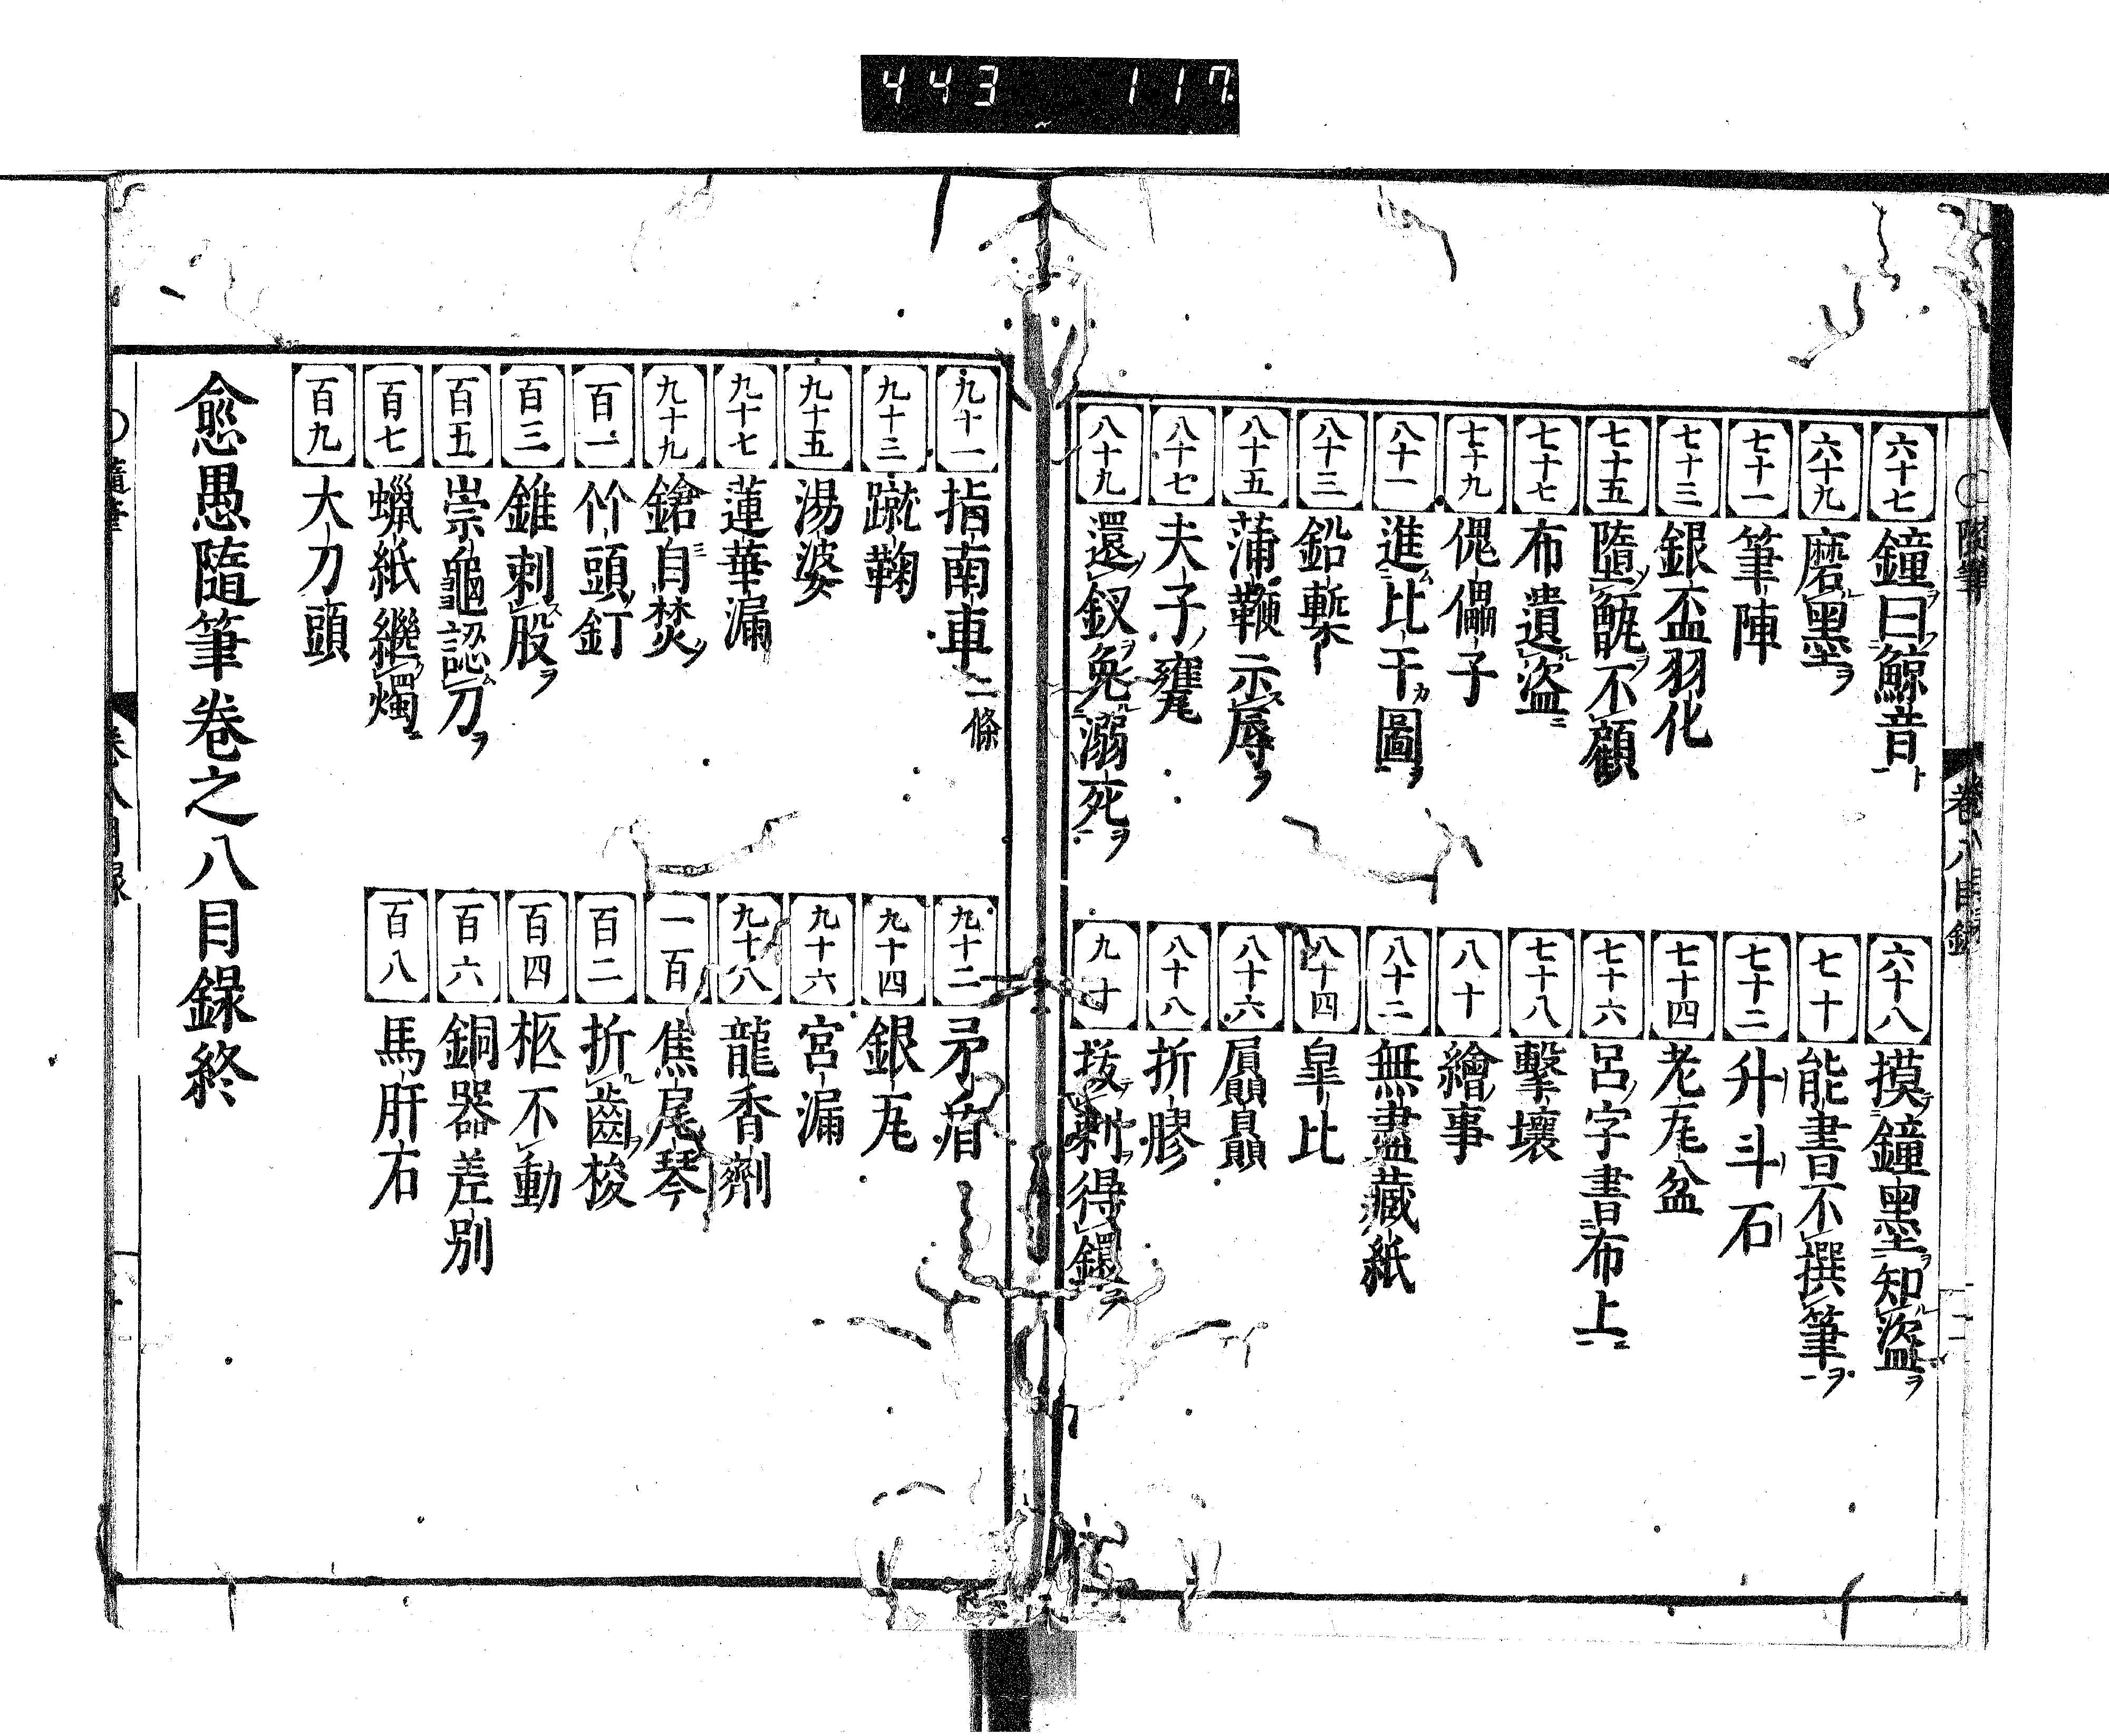 443 117
六十七 鐘曰鯨音
六十八 摸鐘墨知盜
六十九 磨墨
七十 能書不撰筆
七十一 筆陣
七十二 升斗石
七十三 銀盃羽化
七十四 老瓦盆
七十五 墮甑不顧
七十六 呂字書布上
七十七 布遺盜
七十八 擊壤
七十九 傀儡子
八十 繪事
八十一 進比干圖
八十二 無盡藏紙
八十三 鉛槧
八十四 皐比
八十五 蒲鞭示辱
八十六 屓贔
八十七 夫子甕
八十八 折膠
八十九 還釵免溺死
九十 拔剌得鐶
九十一 指南車 二條
九十二 矛盾
九十三 蹴鞠
九十四 銀瓦
九十五 湯婆
九十六 宮漏
九十七 蓮華漏
九十八 龍香劑
九十九 鎗自焚
一百 焦尾琴
百一 竹頭釘
百二 折齒梭
百三 錐刺股
百四 柩不動
百五 崇龜認刀
百六 銅器差別
百七 蠟紙繼燭
百八 馬肝石
百九 大刀頭
愈愚隨筆卷之八目錄終